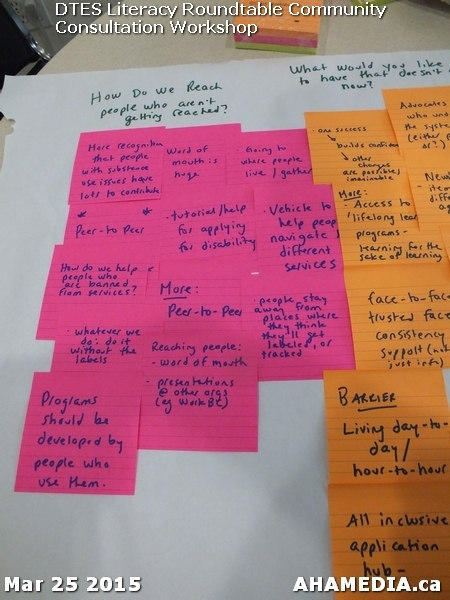 DTES Literacy Roundtable Community
Consultation Workshop
How Do We Reach
people who aren't
getting reached?
What would you like
to have that doesn't
now?
More recognition
that people
with substance
use issues have
lots to contribute
* *
Peer-to-Peer
How do we help
people who
are banned
from services?
- whatever we
do: do it
without the
labels
Programs
should be
developed by
people who
use them.
Word of
mouth is
huge
- tutorial/help
for applying
for disability
More:
Peer-to-Peer
Reaching people:
- word of mouth
- presentations
@ other orgs
(eg WorkBC)
- Going to
where people
live / gather
- Vehicle to
help people
navigate
different
services
- people stay
away from
places where
they think
they'll get
labeled, or
tracked
- one success
builds confidence
other
changes
are possible/
imaginable
More:
- Access to
lifelong
programs-
learning for the
sake of learning
face-to-face
trusted face
consistency
support (not
just info)
BARRIER
Living day-to-
day/
hour-to-hour
All inclusive
application
hub-
Advocates
who
the
(either
or?)
Mar 25 2015
AHAMEDIA.ca